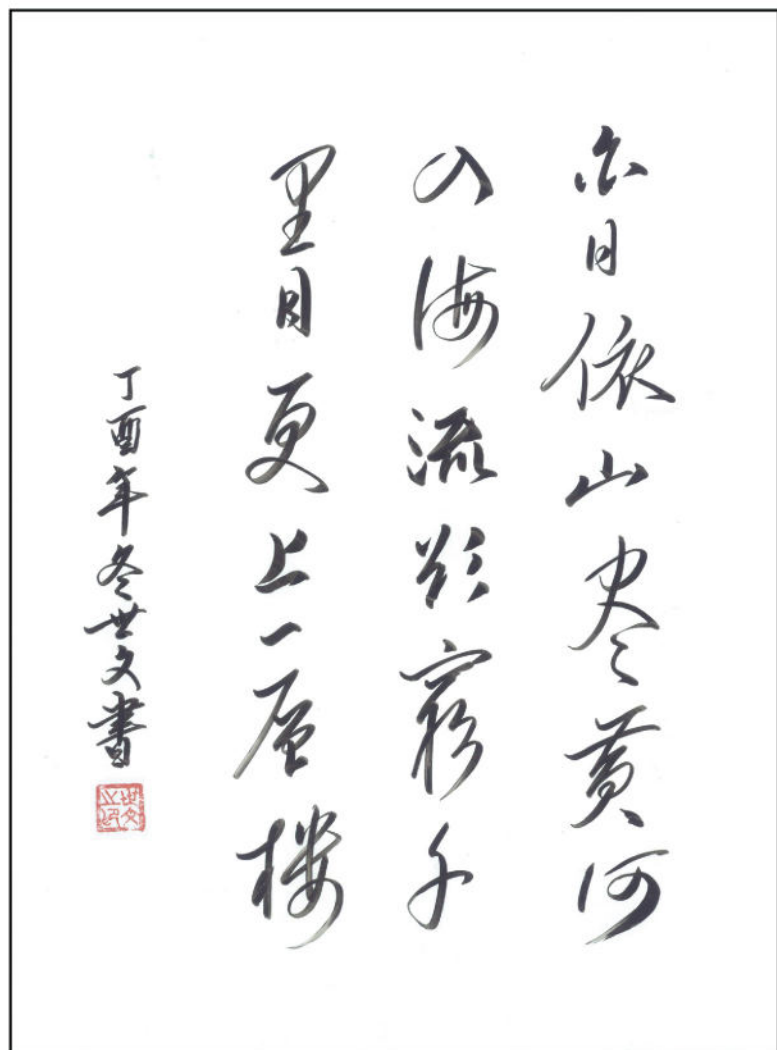 白日依山尽黄河
入海流欲穷千
里目更上一层楼
丁酉年冬世文書
世文之印